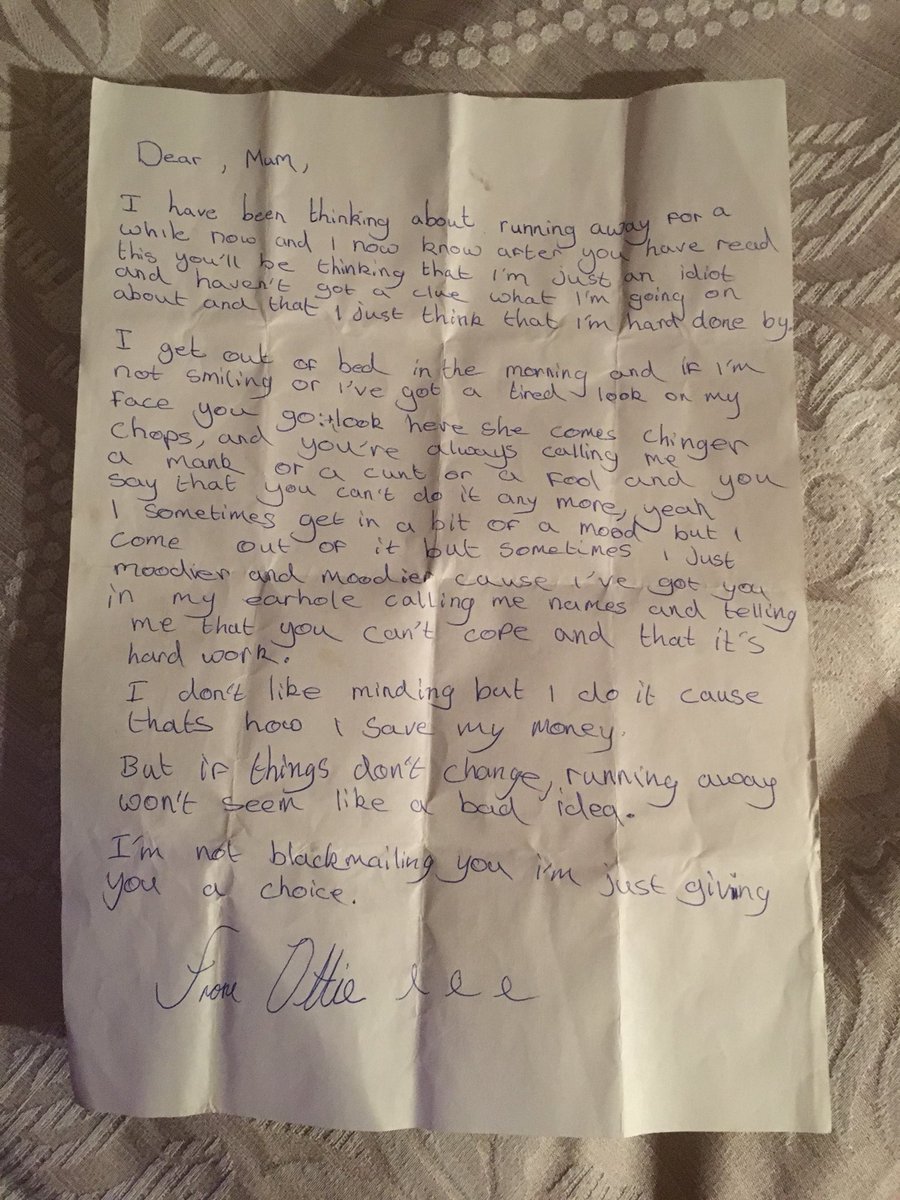 Dear, Mum,
I have been thinking about running away for a
while now and I now know after you have read
this you'll be thinking that I'm just an idiot
and haven't got a clue what I'm going on
about and that I just think that I'm hard done by.
I get out of bed in the morning and if I'm
not smiling or I've got a tired look on my
face you go:+look here she comes chinger
chops, and you're always calling me
a mank or a cunt or a fool and you
say that you can't do it any more, yeah
I sometimes get in a bit of a mood but I
come out of it but sometimes I just
moodier and moodier cause I've got you
in my earhole calling me names and telling
me that you can't cope and that it's
hard work.
I don't like minding but I do it cause
thats how I save my money.
But if things don't change, running away
won't seem like a bad idea.
I'm not blackmailing you i'm just giving
you a choice.
From Ottie lee